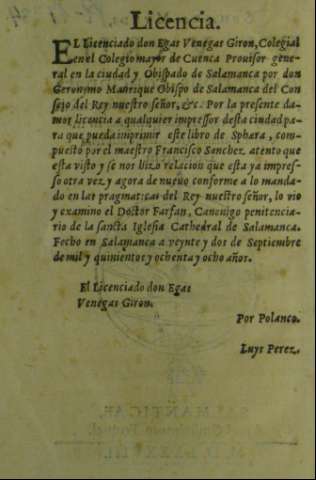 Licencia.
EL Licenciado don Egas Venegas Giron, Colegial
en el Colegio mayor de Cuenca Prouisor gene-
ral en la ciudad y Obispado de Salamanca por don
Geronymo Manrique Obispo de Salamanca del Con
sejo del Rey nuestro señor, &c. Por la presente da-
mos licencia a qualquier impressor desta ciudad pa-
ra que pueda imprimir este libro de Sphæra, com-
puesto por el maestro Francisco Sanchez, atento que
esta visto y se nos hizo relacion que esta ya impres-
so otra vez y agora de nueuo conforme a lo manda-
do en las pragmaticas del Rey nuestro señor, lo vio
y examino el Doctor Farfan, Canonigo penitencia-
rio de la sancta Iglesia Cathedral de Salamanca.
Fecho en Salamanca a veynte y dos de Septiembre
de mil y quinientos y ochenta y ocho años.
El Licenciado don Egas
Venegas Giron.
Por Polanco.
Luys Perez.
SALMANTICAE,